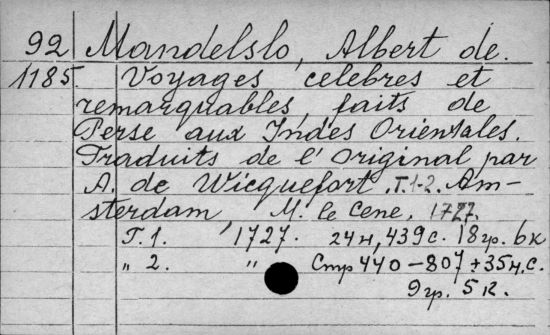 92 Mandelslo, Albert de.
1185. Voyages celebres et
remarquables, faits de
Perse aux Indes Orientales.
Traduits de l'original par
A. de Wicquefort. T. 1-2. Am-
sterdam, M. le Cene, 1727.
T. 1. 1727. 24н, 439 с. 18 гр. 6 к
„ 2. „ Стр 440-807 + 35 н. с.
9 гр. 5 к.